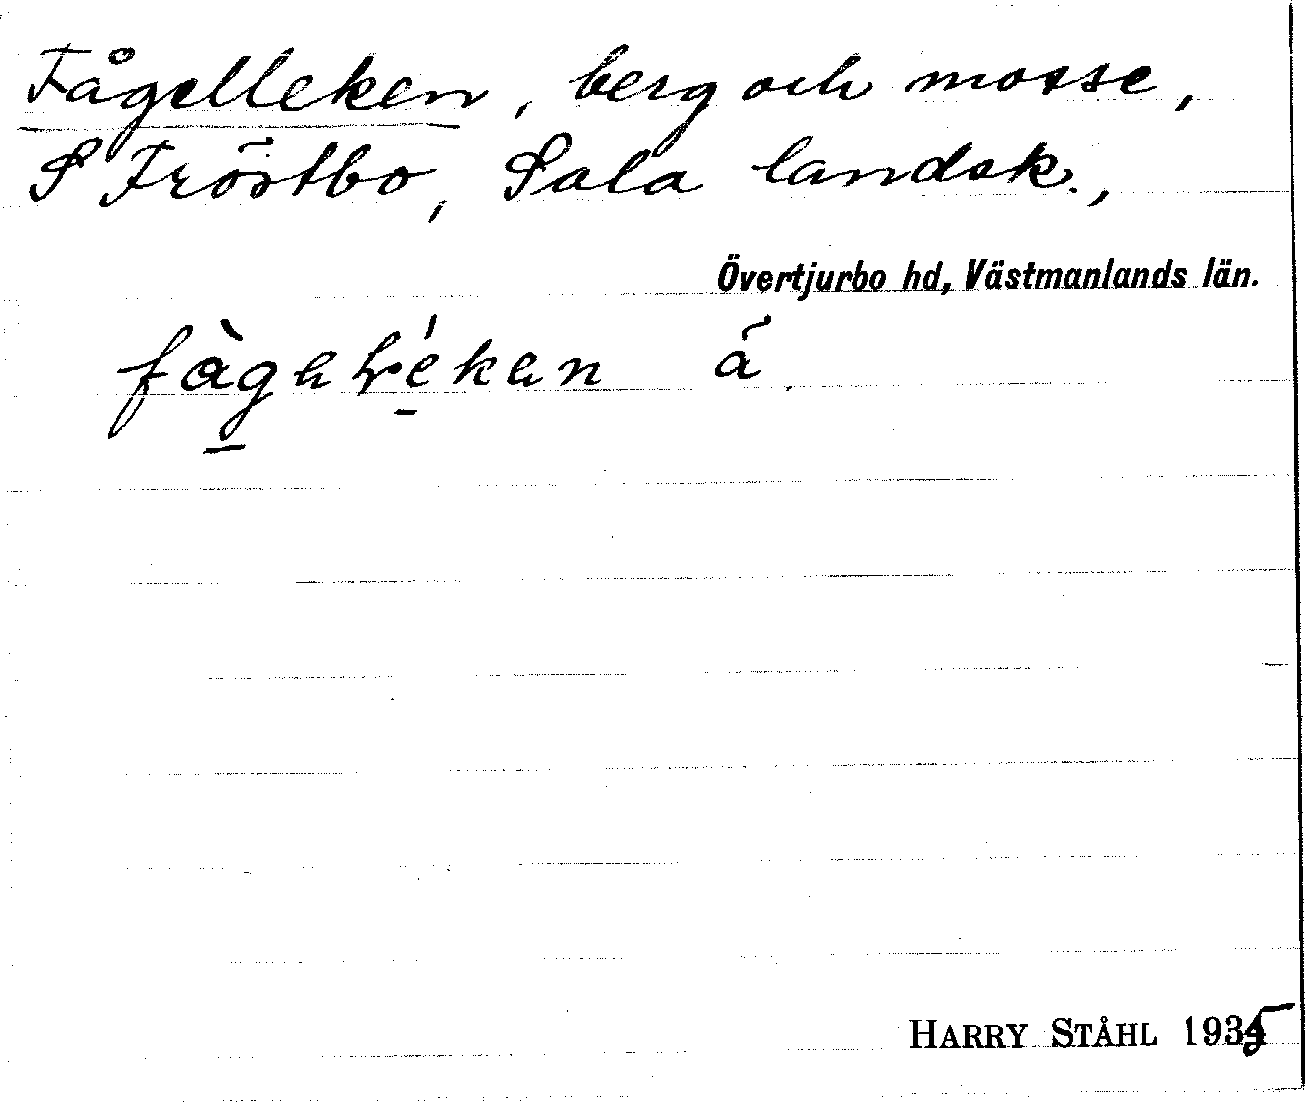 Fågelleken, berg och mosse,
S Fröstbo, Sala landsk.,
Övertjurbo hd, Västmanlands län.
á
HARRY STÅHL 1935